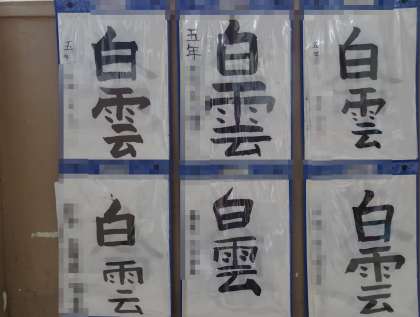 五年
白雲
五年
白雲
五年
白雲
白雲
白雲
白雲